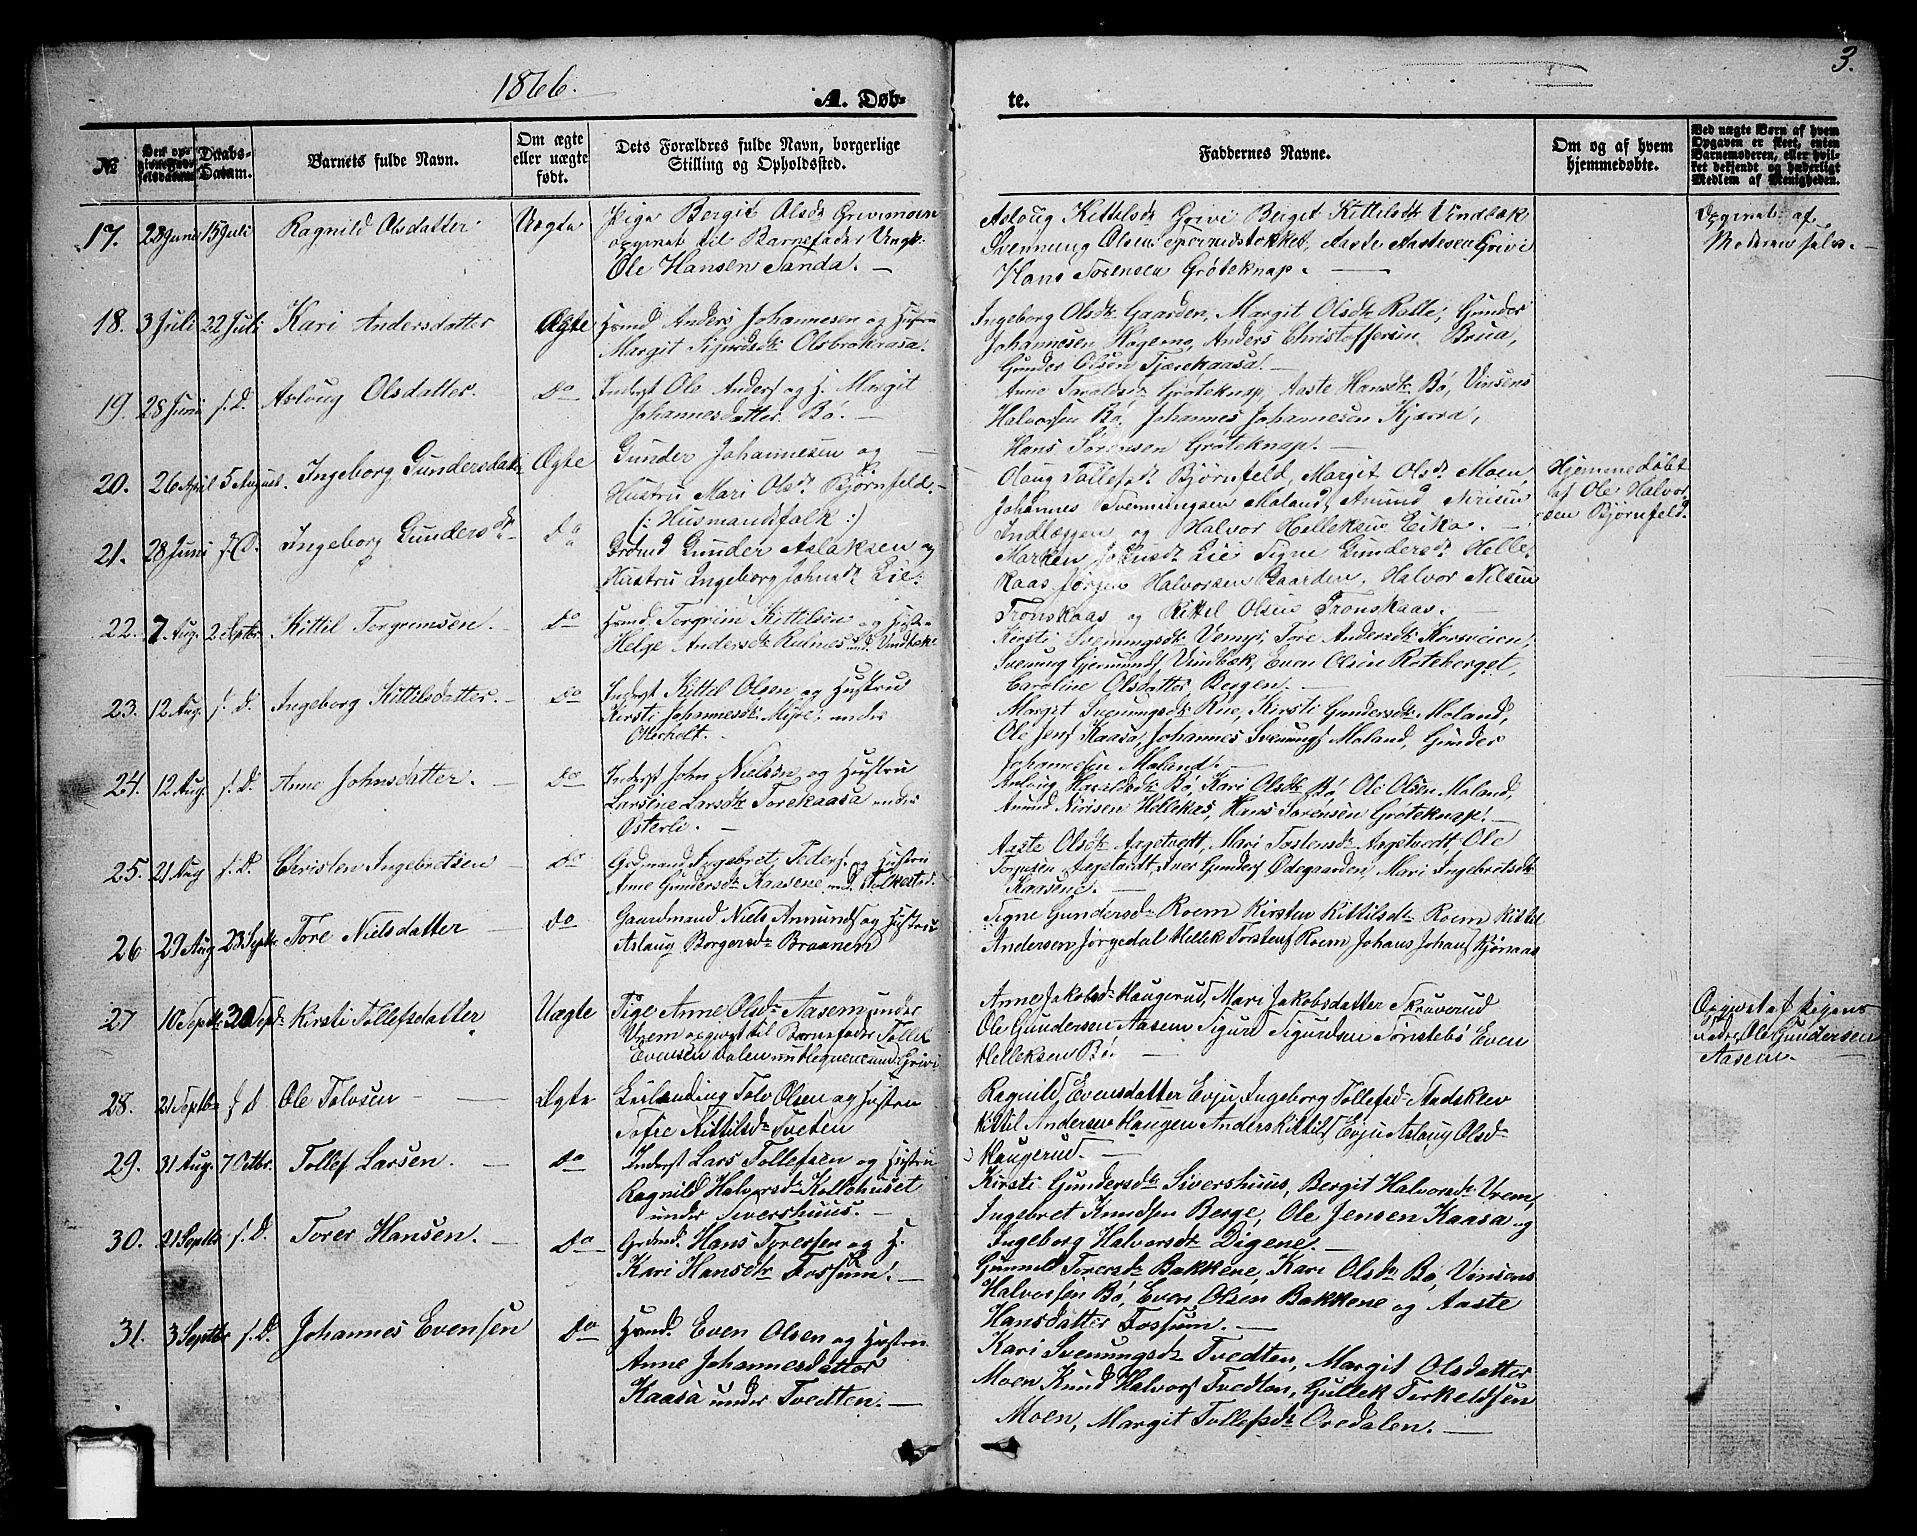 1866.
3.
A. Døb-
te.
№
Daabs-
Datum.
Barnets fulde Navn.
Om ægte
eller uægte
født.
Dets Forældres fulde Navn, borgerlige
Stilling og Opholdssted.
Faddernes Navne.
Om og af hvem
hjemmedøbte.
Ved uægte Børn af hvem
Opgaven er skeet, enten
Barnemoderen, eller hvil-
ket bekjendt og hæderligt
Medlem af Menigheden.
17. 28 Juni 15 Juli Ragnild Olsdatter Uægte Pige Bergit Olsdt Grivimoen
opgivet til Barnefader Ungk:
Ole Hansen Sanda. —
Aslaug Kittelsdt Grivi Bergit Kittilsdt Vindbæk
Svennung Olsen Aaste Aastesen Grivi
Hans Sørensen Grøteknap. —
Opgivet af
Moderen selv. —
18. 3 Juli 22 Juli Kari Andersdatter Ægte Hmd. Anders Johannesen og Hustru
Margit Sigurdsdt Olsbrokaasa.
Ingeborg Olsdt Gaarden, Margit Olsdt Kolle, Gunder
Johannesen Hogemo, Anders Christoffersen Brua,
Gunder Olsen Tjærekaasa.
19. 28 Juni s. D. Aslaug Olsdatter Do Inderst Ole Anders og H. Margit
Johannesdatter Bö. —
Anne Taraldsdt Grøteknap, Aaste Hansdt Bö, Vinsens
Halvorsen Bö, Johannes Johannesen Kjærra,
Hans Sørensen Grøteknap. —
20. 26 April 5 August. Ingeborg Gundersdatt Ægte Gunder Johannesen og
Hustru Mari Olsdt Bjørnfeld. —
(: Husmandsfolk :)
Olaug Tollefsdt Bjørnfeld, Margit Olsdt Moen,
Johannes Svenningsen Moland, Amund Nirisen
Indlæggen og Halvor Helleksen Eika. —
Hjemmedøbt
af Ole Halvor
sen Bjørnfeld.
21. 28 Juni s. D. Ingeborg Gundersdtr Do Grdmd Gunder Aslaksen og
Hustru Ingeborg Johnsdt Lie.
Marken Johnsdt Lie, Signe Gundersdt Helle
kaas Jørgen Halvorsen Gaarden, Halvor Nilsen
Tronskaas og Kittil Olsen Tronskaas. —
22. 7 Aug. 2 Septbr. Kittil Torgrimsen. Do Hmd. Torgrim Kittilsen og Hustru
Helge Andersdt Und. Vindbæk.
Kirsti Svenungsdt Tore Andersdt Korsveien,
Svenung Gjermunds Vindbæk, Even Olsen Roteberget,
Caroline Olsdatter Bergen. —
23. 12 Aug. s. D. Ingeborg Kittilsdatter. Do Inderst Kittil Olsen og Hustru
Kirsti Johannesdt Myre under
Otterholt. —
Margit Svenungsdt Rue, Kirsti Gundersdt Moland,
Ole Jens Kaasa, Johannes Svenungs Moland, Gunder
Johannesen Moland. —
24. 12 Aug. s. D. Anne Johnsdatter. — Do Inderst John Nielsen og Hustru
Larsene Larsdt Torekaasa under
Østerli. —
Aslaug Haraldsdt Bö, Kari Olsdt Bö Ole Olsen Moland,
Amund Nirisen Hellekaas, Hans Sørensen Grøteknap. —
25. 21 Aug s. D. Christen Ingebretsen Do Grdmand Ingebret Peders. og Hustru
Anne Gundersdt Kaasene und. Folkestad.
Aaste Olsdt Argetvedt, Mari Tostensdt Argetvedt, Ole
Gunders Ødegaarden, Mari Ingebretsdt
Kaasene. —
26 29 Aug. 23 Septbr. Tore Nielsdatter — Do Gaardmand Niels Anmunds og Hustru
Aslaug Borgersdt Braanen
Signe Gundersdt Roem Kirsten Kittilsdt Roem Kittel
Andersen Jørgedal Hellek Torstens Roem Johans Johans Kjønaas
27 10 Septbr 30 Septbr Kirsti Tollefsdatter Uægte Pige Anne Olsdt Aasem under
Vrem opgivet til Barnefader Tollef
Evensen Dalen
Anne Jakobsdt Haugerud, Mari Jakobsdatter Skraverud
Ole Gundersen Aasem Sigurd Sigurdsen Tønstebö Even
Helleksen Bö. —
Opgivet af Pigens
Fader, Ole Gundersen
Aasem. —
28. 21 Septbr s D Ole Tolvsen — Ægte Leilænding Tolv Olsen og Hustru
Sofie Kittilsdt Tveten
Ragnild Evensdatter Evju, Ingeborg Tollefsdt Aadsklev
Kittil Andersen Haugen Anders Kittils Evju Aslaug Olsdt
Haugerud. —
29. 31 Aug. 7 Octbr. Tollef Larsen. — Do Inderst Lars Tollefsen og Hustru
Ragnild Halvorsdt Kollohuset
under Sivershuus. —
Kirsti Gundersdt Sivershuus, Bergit Halvorsdt Vrem,
Ingebret Knudsen Berge, Ole Jensen Kaasa og
Ingeborg Halvorsdt Digene. —
30. 21 Septbr s. D. Torer Hansen. — Do Grdmd. Hans Toressen og H.
Kari Hansdt Fossum. —
Gunnild Torersdt Bakkene, Kari Olsdt Bö, Vinsens
Halvorsen Bö, Even Olsen Bakkene og Aaste
Hansdatter Fossum. —
31. 3 Septbr s. D. Johannes Evensen Do Hmd. Even Olsen og Hustru
Anne Johannesdatter
Kaasa under Tvedten. —
Kari Svenungsdt Tvedten, Margit Olsdatter
Moen, Knud Halvors Tvedten, Gullek Terkeldsen
Moen, Margit Tollefsdt Oredalen. —